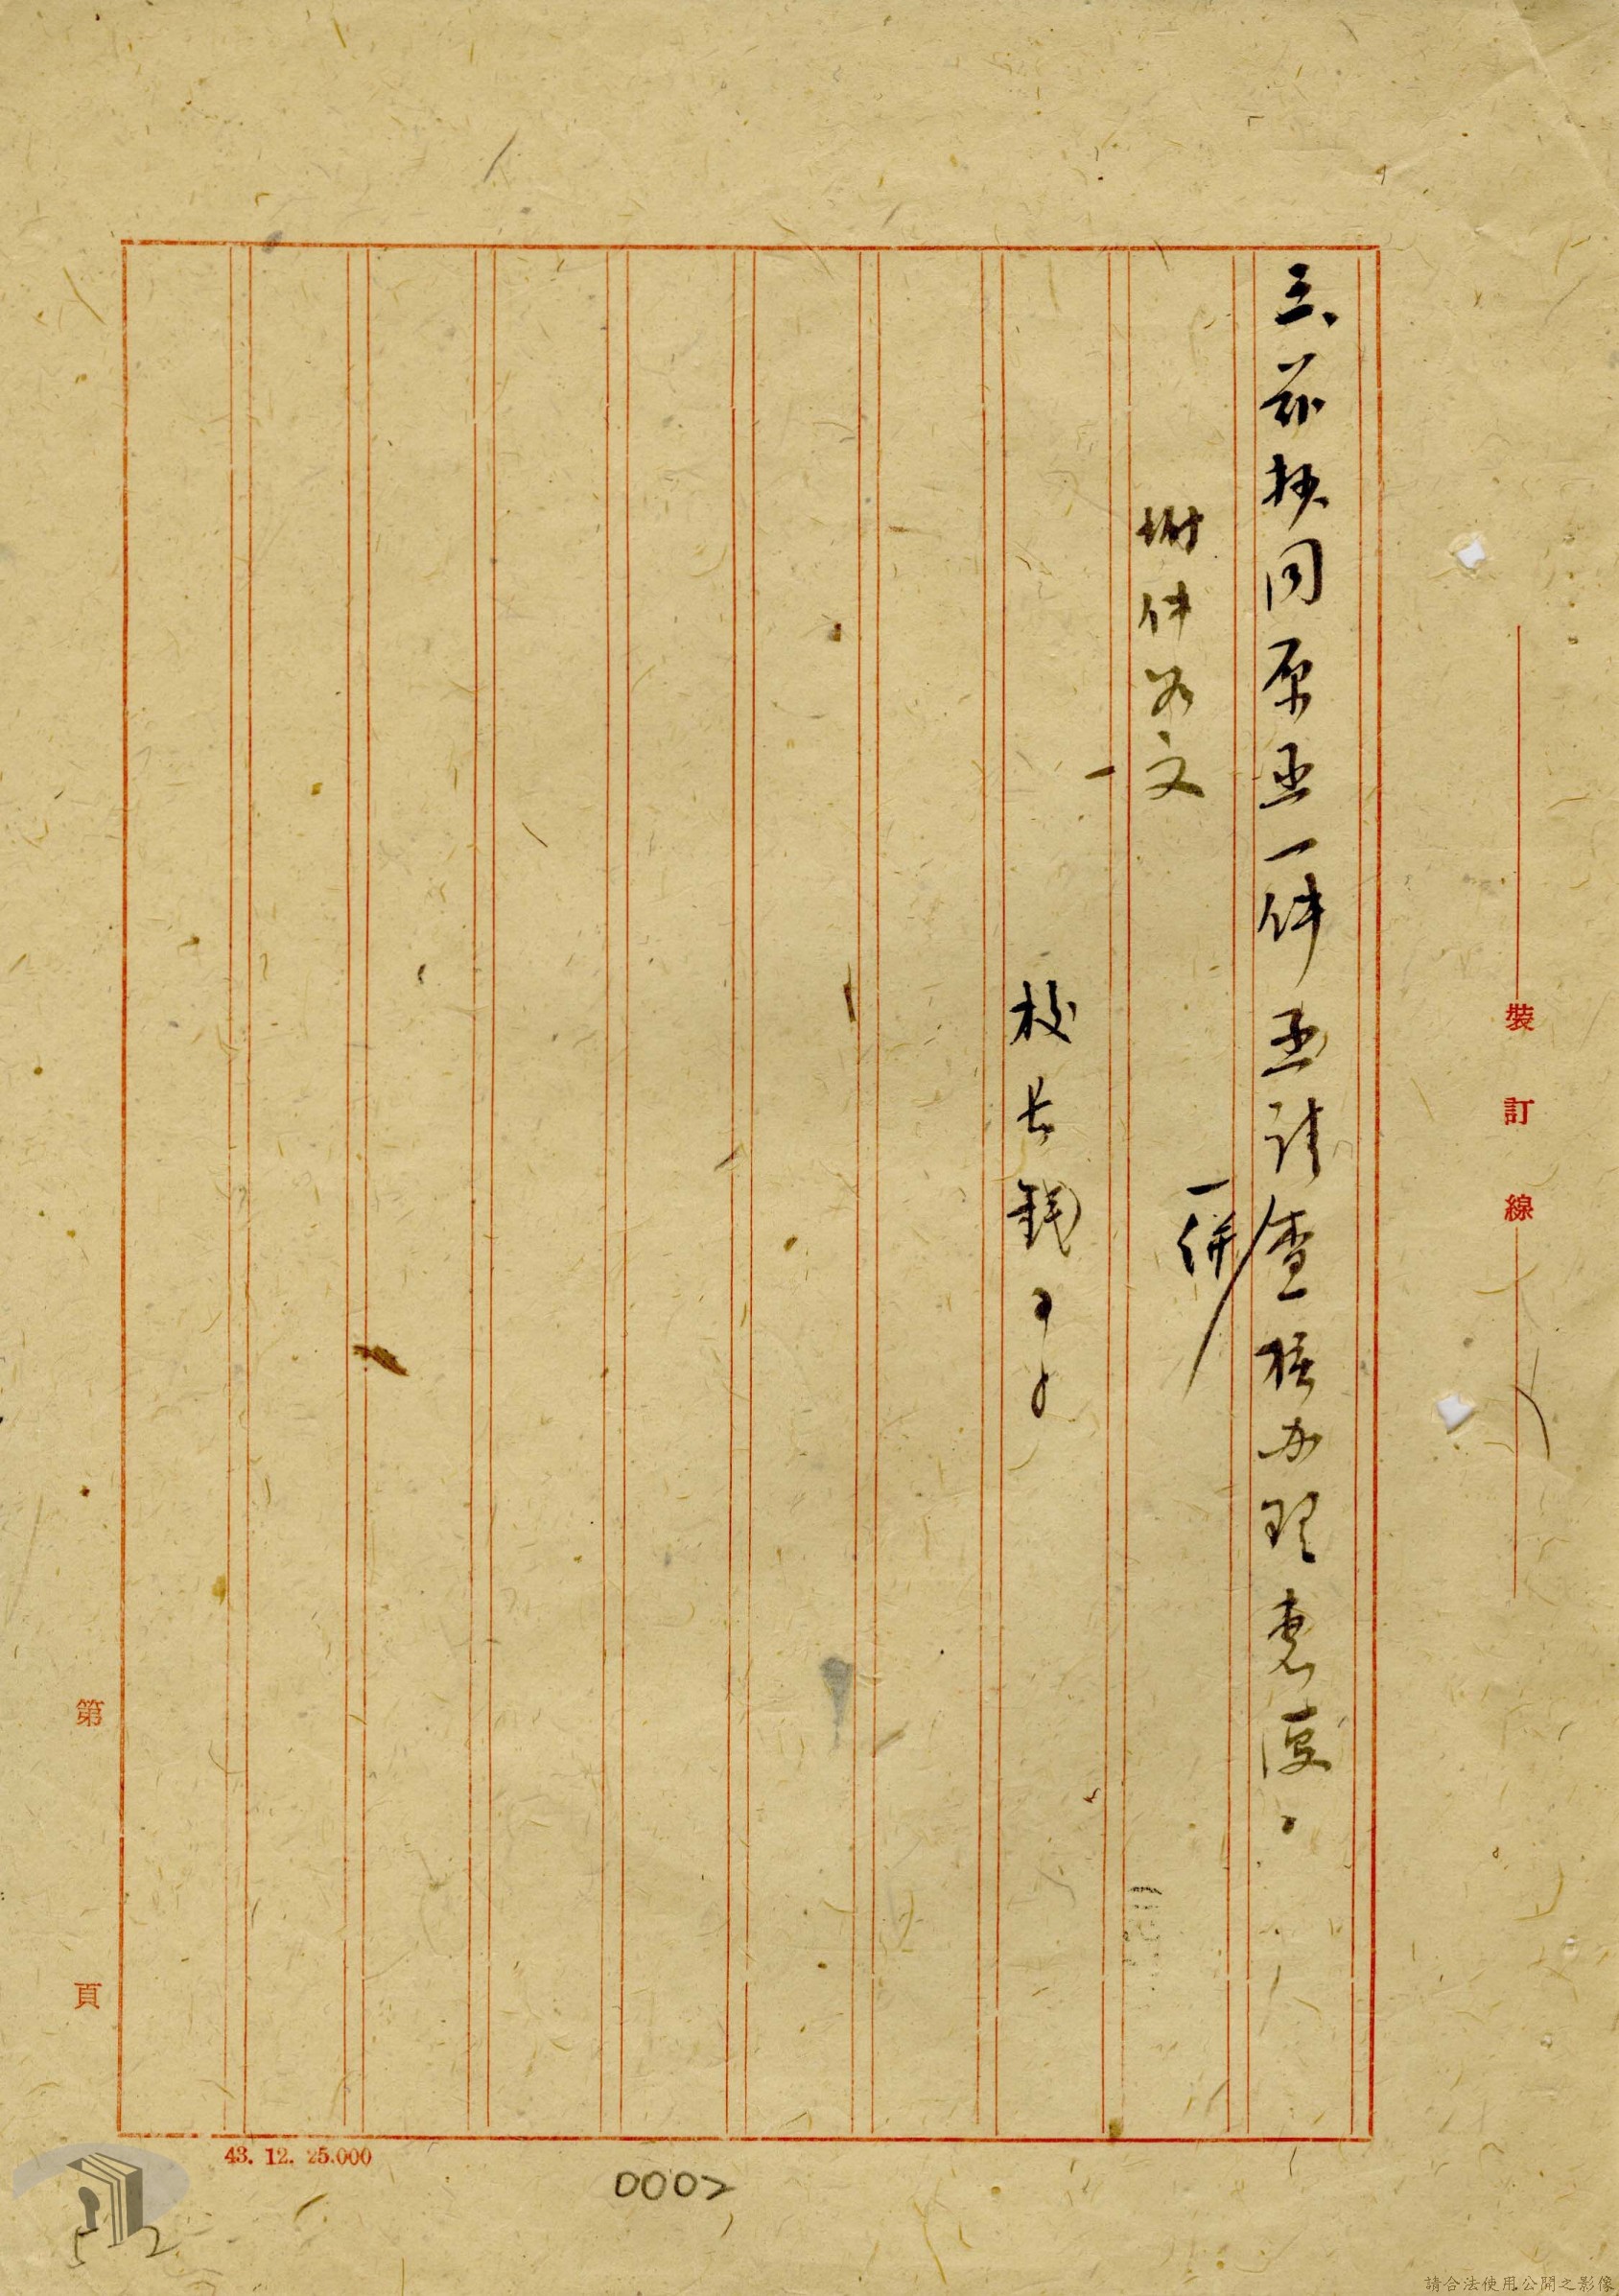 裝訂線
三、兹抄同原函一件函請一併查核办理惠復、
附件如文
校長錢
第 頁
43. 12. 25.000
0002
52
請合法使用公開之影像